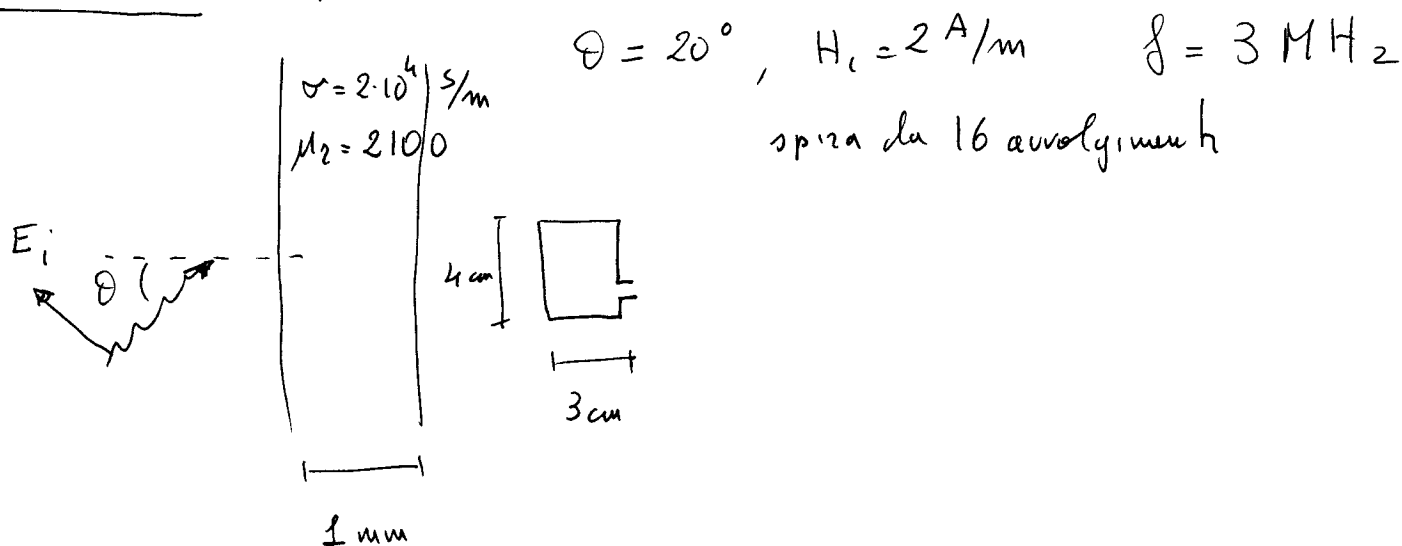 θ = 20°, H_i = 2 A/m f = 3 MHz
σ = 2·10⁴ S/m
μ_r = 2100
spira da 16 avvolgimenti
E_i
θ
4 cm
3 cm
1 mm